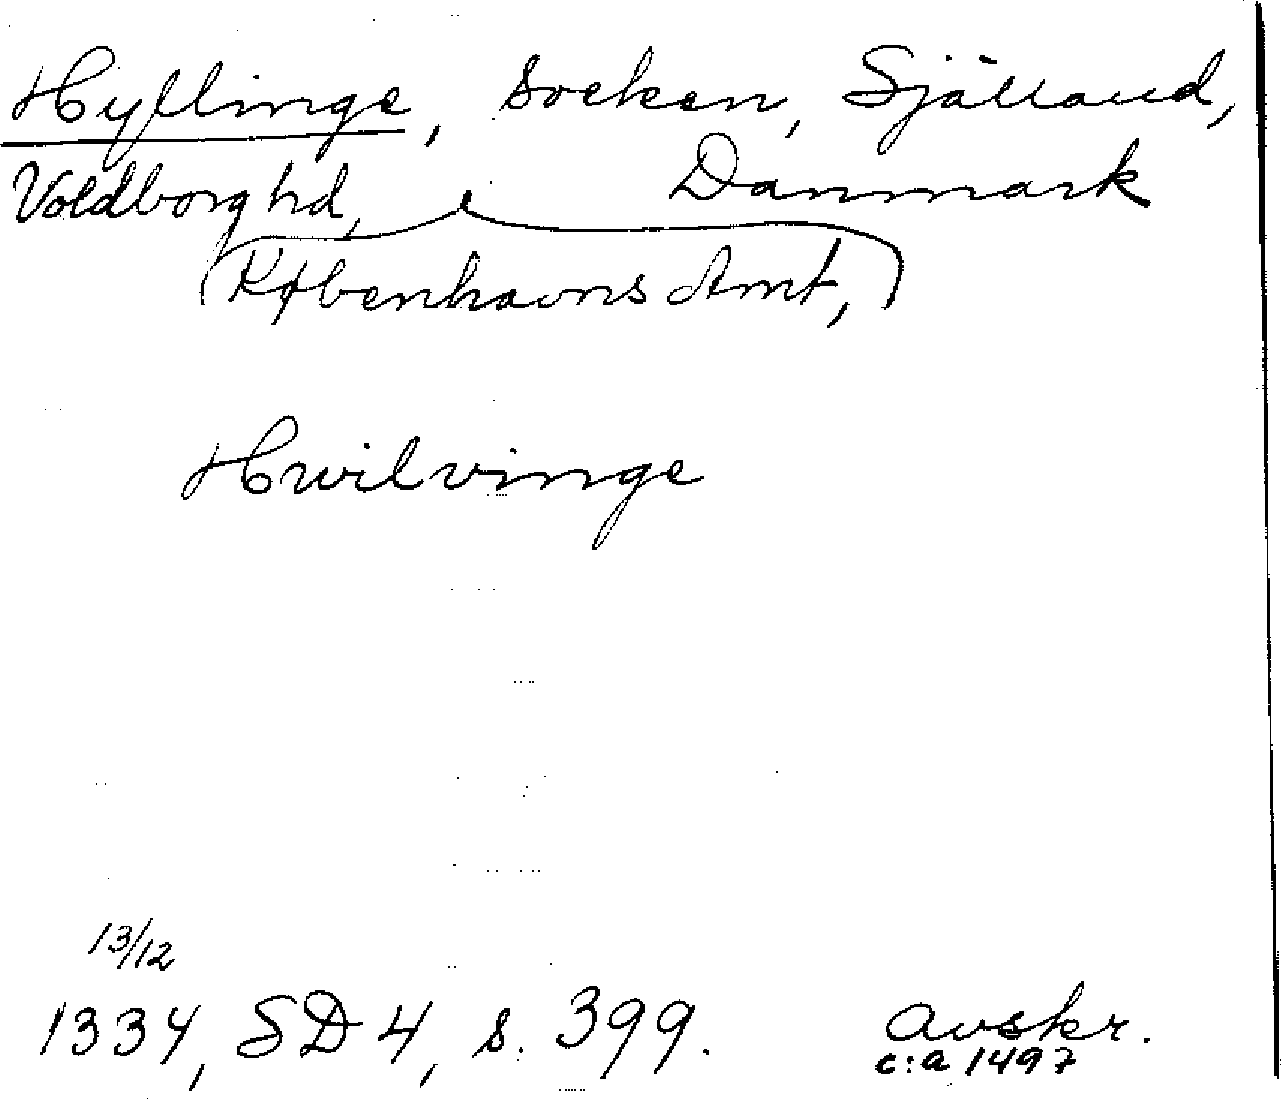 Hyllinge, socken, Själland,
Voldborg hd, Danmark
(Københavns Amt,)
Hwilvinge
13/12
1334, SD 4, s. 399. Avskr.
c:a 1497